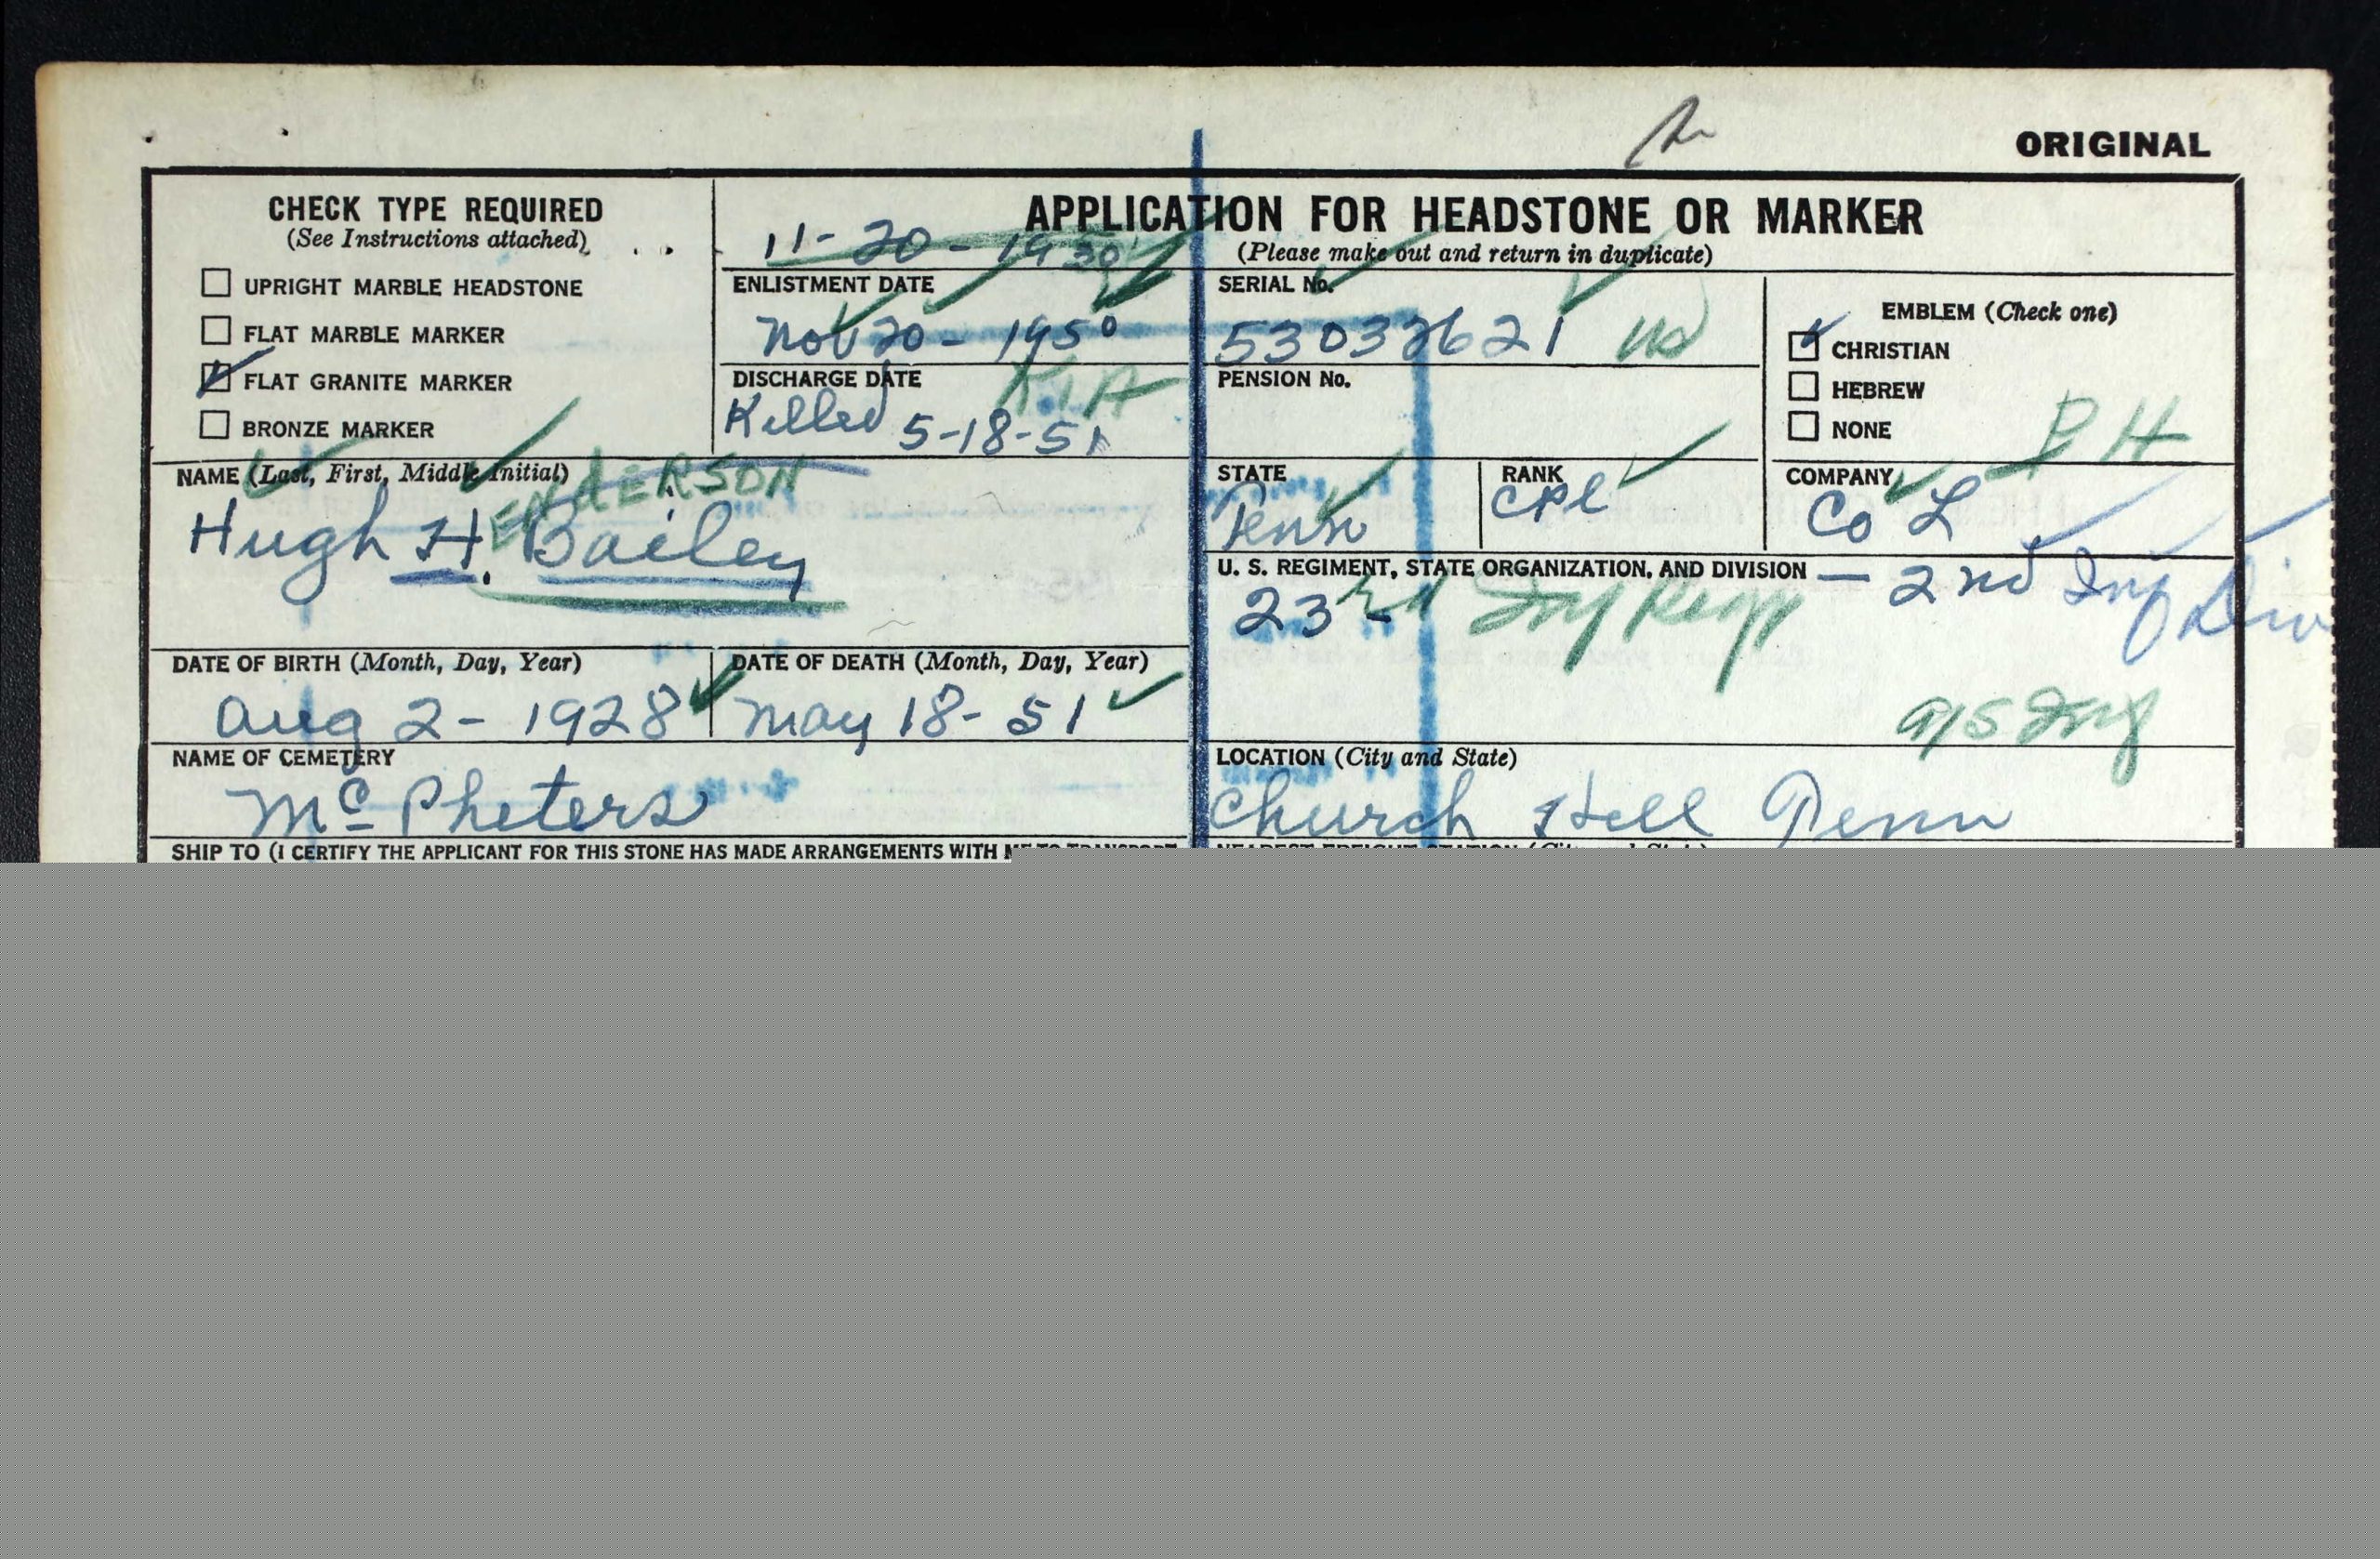 ORIGINAL
CHECK TYPE REQUIRED
(See Instructions attached)
UPRIGHT MARBLE HEADSTONE
FLAT MARBLE MARKER
FLAT GRANITE MARKER
BRONZE MARKER
APPLICATION FOR HEADSTONE OR MARKER
(Please make out and return in duplicate)
11-20-1950
ENLISTMENT DATE
Nov 20 - 1950
DISCHARGE DATE
KIA
Killed 5-18-51
SERIAL No.
53032621 US
PENSION No.
EMBLEM (Check one)
CHRISTIAN
HEBREW
NONE
PH
NAME (Last, First, Middle Initial)
ENDERSON
Hugh H. Bailey
STATE
Tenn
RANK
CPl
COMPANY
Co L
U. S. REGIMENT, STATE ORGANIZATION, AND DIVISION — 2nd Inf Div
23rd Inf Regt
DATE OF BIRTH (Month, Day, Year)
Aug 2 - 1928
DATE OF DEATH (Month, Day, Year)
May 18 - 51
A/S Inf
NAME OF CEMETERY
McPheters
LOCATION (City and State)
Church Hill Tenn
SHIP TO (I CERTIFY THE APPLICANT FOR THIS STONE HAS MADE ARRANGEMENTS WITH ME TO TRANSPORT
NEAREST FREIGHT STATION (City and State)